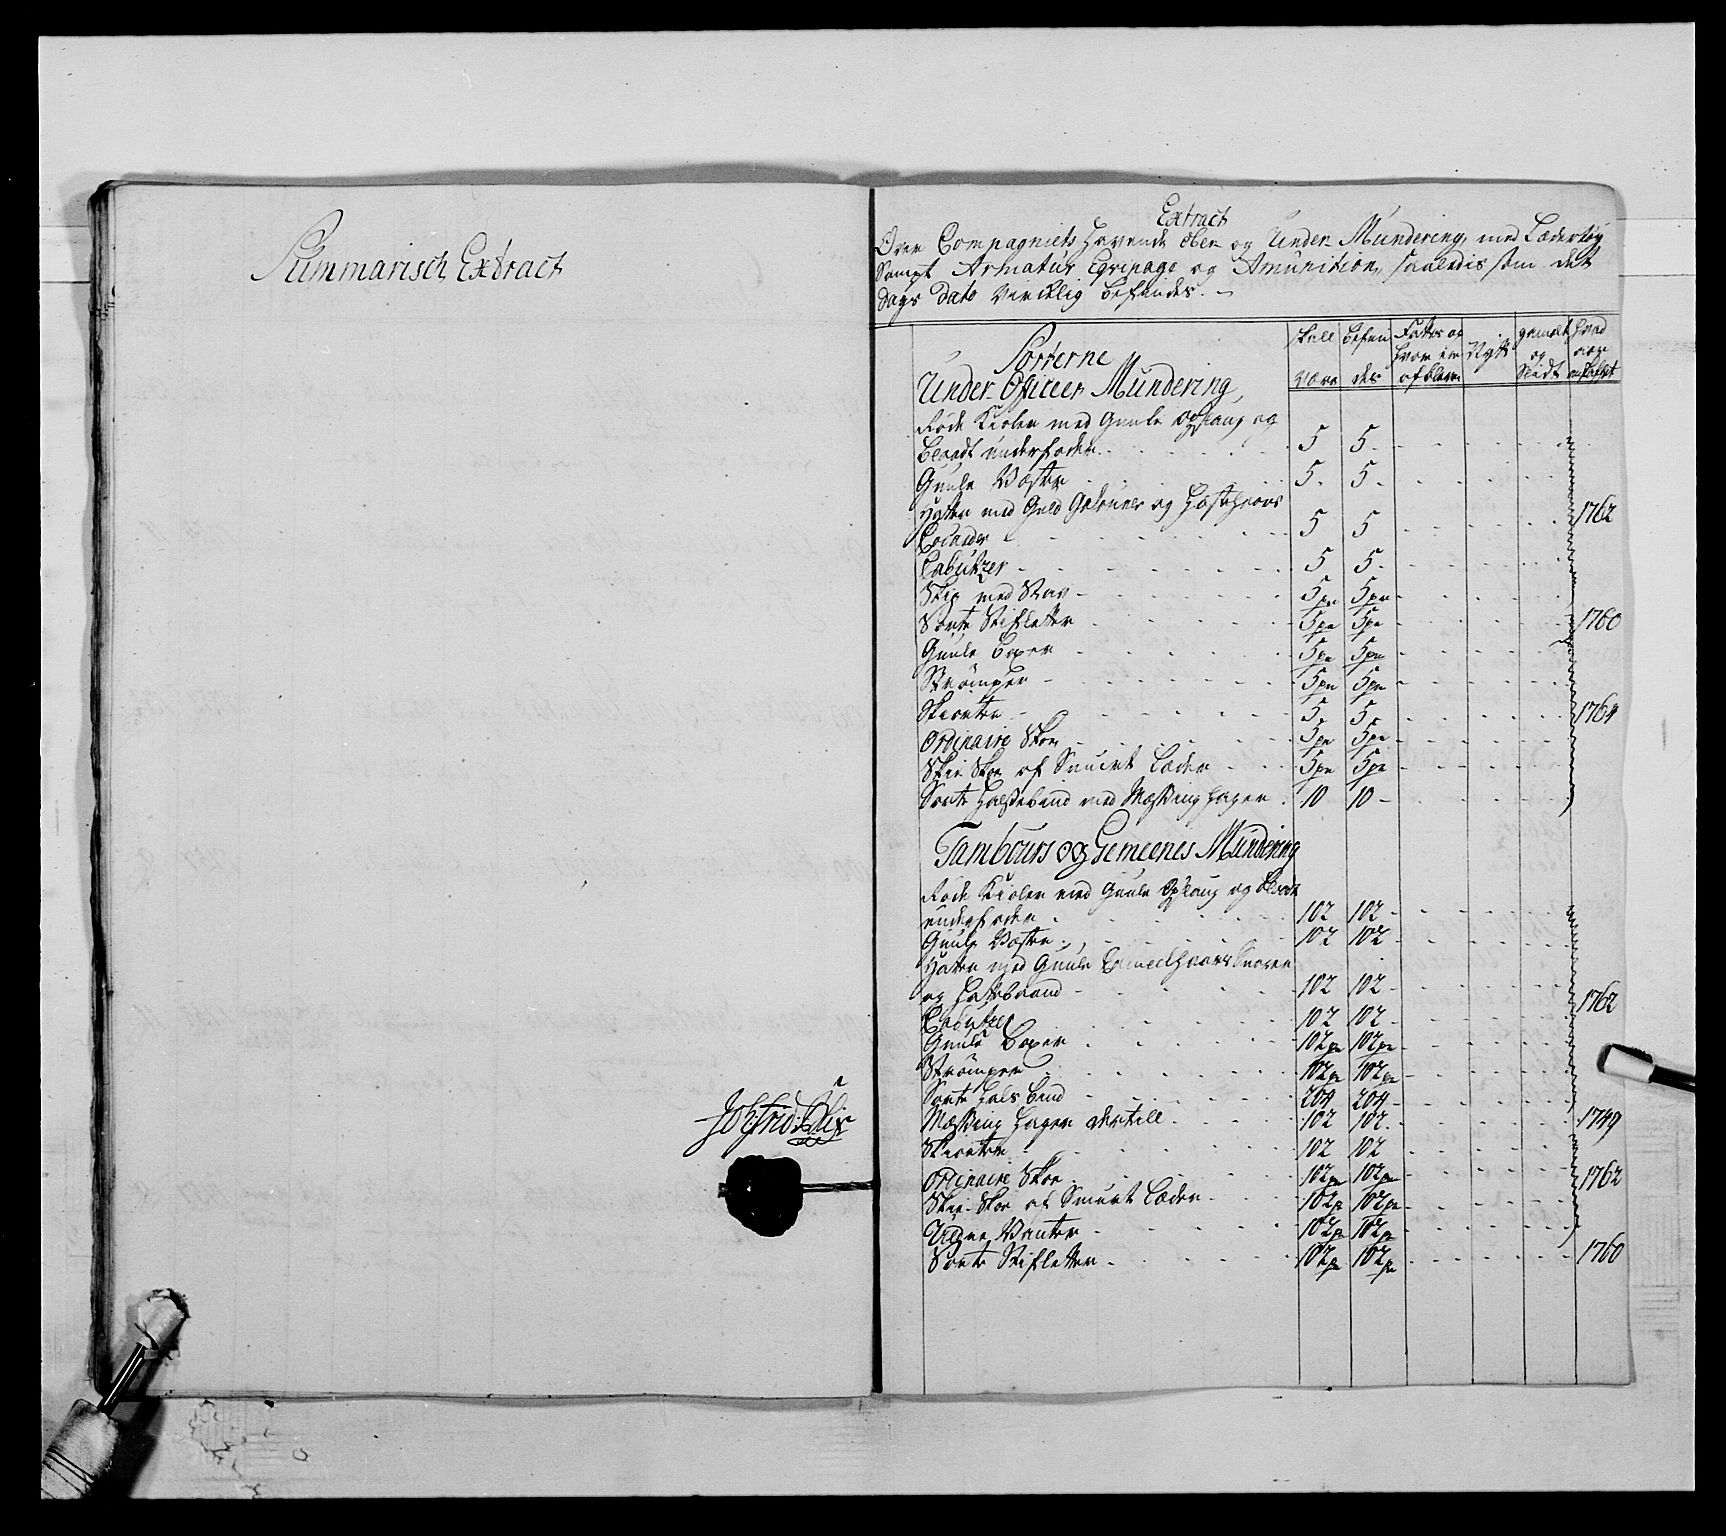 Summarisch Extract
Extract
Over Compagniets havende Ober og Under Mundering, med Lædertøy
Sampt Armatur Eqvipage og Amunition, saaledis som det
Dags Dato virklig befindes. —
Sorterne
skall være
befindes
Fattes og hvor en af bleven
Nytt
gamelt og Slidt
hvad aar anskaffet
Under-Officeer Mundering,
Røde Kioler med Guule Opslaug og
blaadt underfoder 5 5
Guule Vester 5 5
Hatter med Guld Galouner og Hestehaars
Coquarder 5 5 1762
Cabutzer 5 5
Skie med Stav 5 pr 5 pr
Sorte Stifletter 5 pr 5 pr 1760
Guule Boxer 5 pr 5 pr
Strømper 5 pr 5 pr
Skiorter 5 5 1764
Ordinaire Skoe 5 pr 5 pr
Skie Skoe af Smurt Læder 5 pr 5 pr
Sorte Halsebind med Messing Hager 10 10
Tambours og Gemeenes Mundering
Røde Kioler med Guule Opslaug og blaadt
underfoder 102 102
Guule Vester 102 102
Hatter med Guule Cameelhaars Snorer
og Hattebaand 102 102 1762
Cabutzer 102 102
Guule Boxer 102 pr 102 pr
Strømper 102 pr 102 pr
Sorte Hals bind 204 204
Messing Hager dertill 102 102 1749
Skiorter 102 102
Ordinaire Skoe 102 pr 102 pr 1762
Skie-Skoe af Smurt Læder 102 pr 102 pr
Uldne Vanter 102 pr 102 pr
Sorte Stifletter 102 pr 102 pr 1760